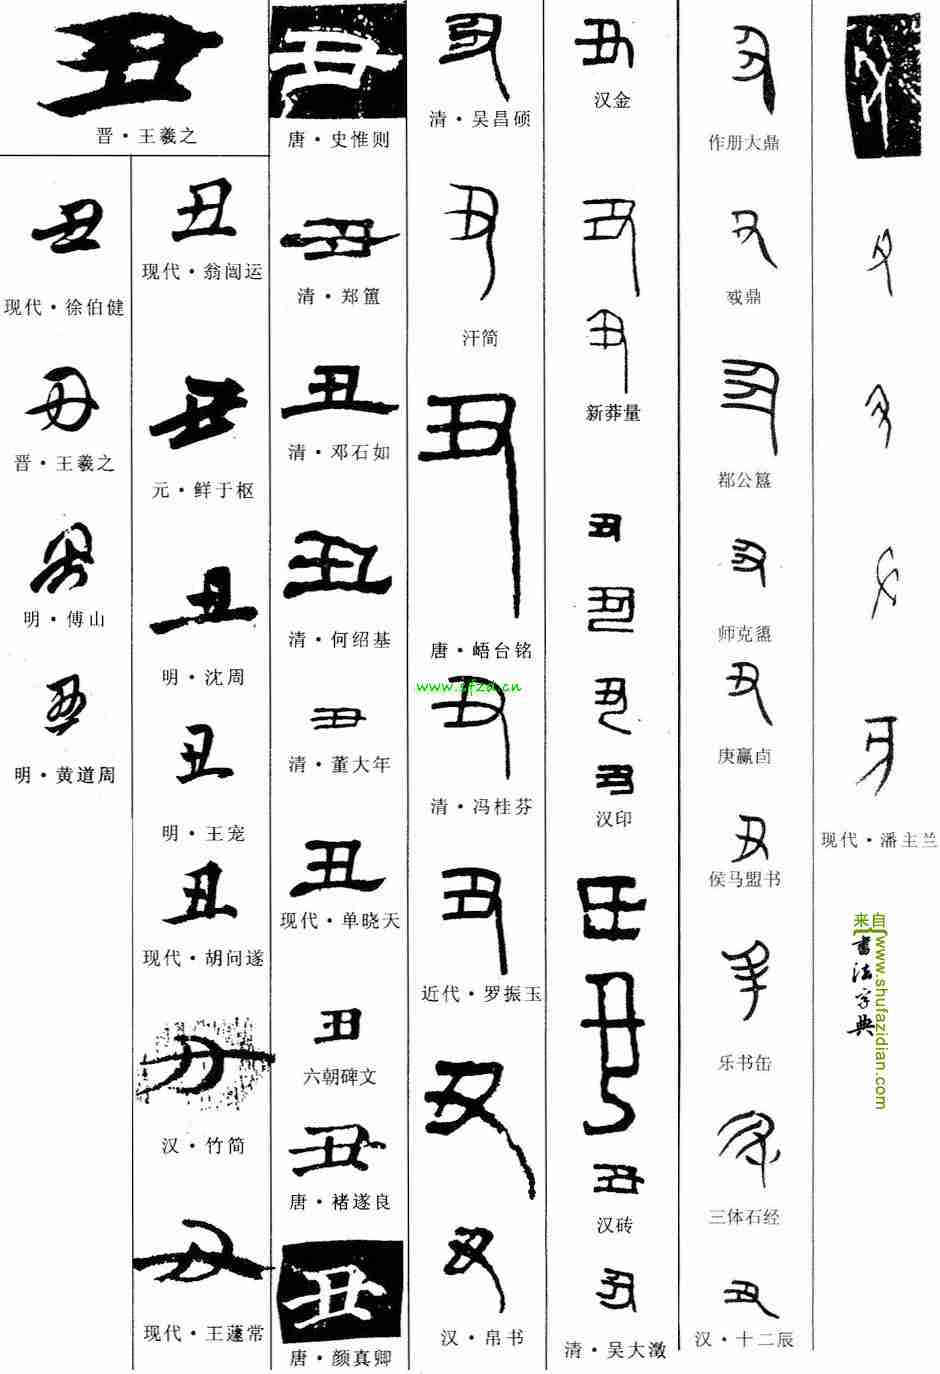 丑
晋·王羲之
丑
现代·徐伯健
丑
晋·王羲之
丑
明·傅山
丑
明·黄道周
丑
现代·翁闿运
丑
元·鲜于枢
丑
明·沈周
丑
明·王宠
丑
现代·胡问遂
丑
汉·竹简
丑
现代·王蘧常
丑
唐·史惟则
丑
清·郑簠
丑
清·邓石如
丑
清·何绍基
丑
清·董大年
丑
现代·单晓天
丑
六朝碑文
丑
唐·褚遂良
丑
唐·颜真卿
丑
清·吴昌硕
丑
汗简
丑
唐·峿台铭
www.sfzd.cn
丑
清·冯桂芬
丑
近代·罗振玉
丑
丑
汉·帛书
丑
汉金
丑
丑
新莽量
丑
丑
丑
丑
汉印
丑
丑
丑
汉砖
丑
清·吴大澂
丑
作册大鼎
丑
丑
丑
丑
师克盨
丑
庚赢卣
丑
侯马盟书
丑
乐书缶
丑
三体石经
丑
汉·十二辰
丑
丑
丑
丑
丑
现代·潘主兰
来自
书法字典
www.shufazidian.com